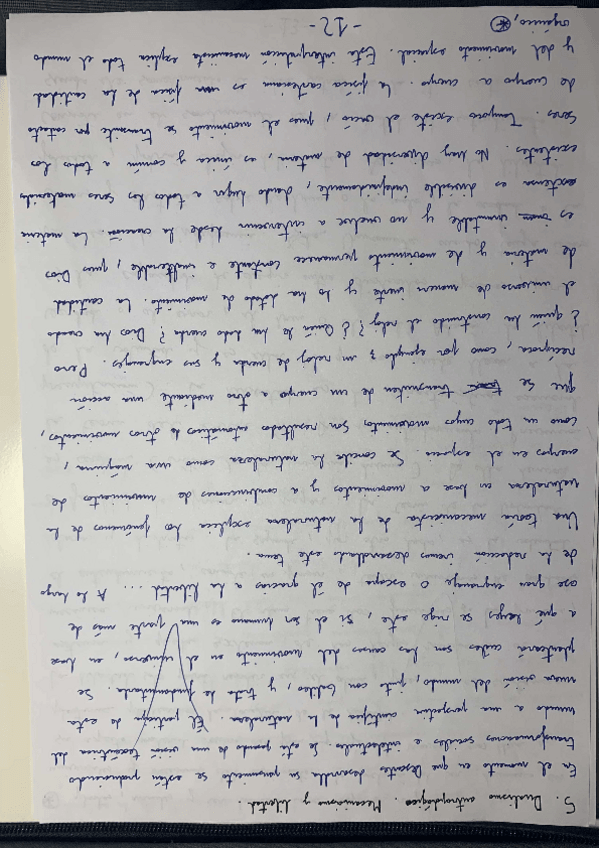 5. Dualismo antropológico. Mecanicismo y libertad.
En el momento en que Descartes desarrolla su pensamiento se están produciendo
transformaciones sociales e intelectuales. Se está pasando de una visión teocéntrica del
mundo a una perspectiva científica de la naturaleza. Él participa de esta
nueva visión del mundo, junto con Galileo, y trata de fundamentarla. Se
planteará cuáles son las causas del movimiento en el universo, en base
a qué leyes se rige este, si el ser humano es una parte más de
ese gran engranaje o escapa de él gracias a la libertad.... A lo largo
de la redacción iremos desarrollando este tema.
Una teoría mecanicista de la naturaleza explica los fenómenos de la
naturaleza en base a movimientos y a combinaciones de movimientos de
cuerpos en el espacio. Se concibe la naturaleza como una máquina,
como un todo cuyos movimientos son resultados automáticos de otros movimientos,
que se transmiten de un cuerpo a otro mediante una acción
recíproca, como por ejemplo un reloj de cuerda y sus engranajes. Pero
¿quién ha construido el reloj? ¿Quién le ha dado cuerda? Dios ha creado
el universo de manera inerte y lo ha dotado de movimiento. La cantidad
de materia y de movimiento permanece constante e inalterable, pues Dios
es inmutable y no vuelve a intervenir desde la creación. La materia
extensa es divisible indefinidamente, dando lugar a todos los seres materiales
existentes. No hay diversidad de materia, es única y común a todos los
seres. Tampoco existe el vacío, pues el movimiento se transmite por contacto
de cuerpo a cuerpo. La física cartesiana es una física de la cantidad
y del movimiento espacial. Esta interpretación mecanicista explica todo el mundo
orgánico,
-12-